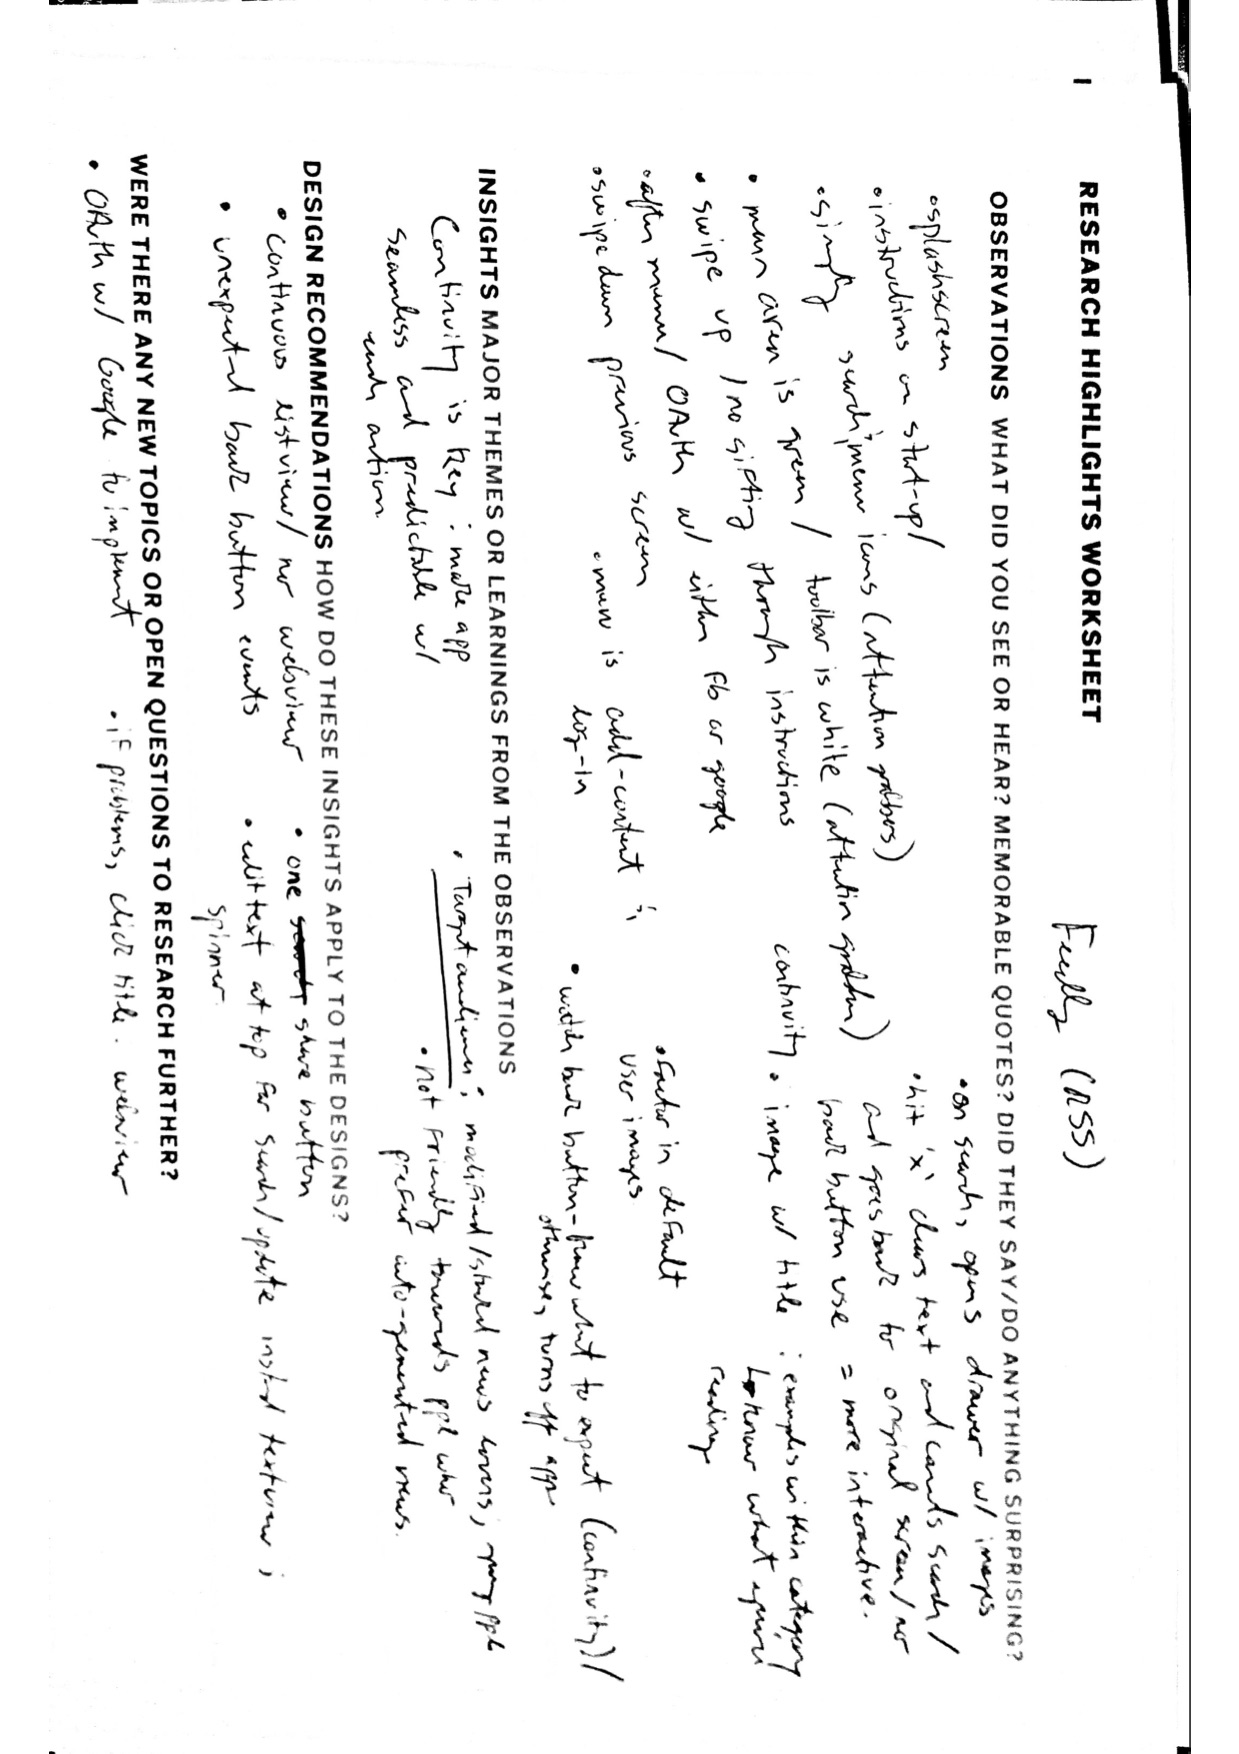 RESEARCH HIGHLIGHTS WORKSHEET
Feedly (RSS)
OBSERVATIONS WHAT DID YOU SEE OR HEAR? MEMORABLE QUOTES? DID THEY SAY/DO ANYTHING SURPRISING?
• splashscreen
• instructions on start-up/
search; menu icons (attention grabbers)
• simply
• main area is green / toolbar is white (attention grabber)
• swipe up / no sifting through instructions
• after menu / OAuth w/ either Fb or google
• swipe down previous screen
• menu is add-content &
log-in
• on search, opens drawer w/ images
• hit 'x' clears text and cancels search /
and goes back to original screen / no
back button use = more interactive.
continuity • image w/ title : examples within category/
know what
reading
• Factor in default
user images
• watch back button - know what to expect (continuity) /
otherwise, turns off app
INSIGHTS MAJOR THEMES OR LEARNINGS FROM THE OBSERVATIONS
Continuity is key : make app
seamless and predictable w/
each action.
• Target audience : modified / news lovers; ppl
• not friendly towards ppl who
prefer auto-generated news.
DESIGN RECOMMENDATIONS HOW DO THESE INSIGHTS APPLY TO THE DESIGNS?
• continuous listview / no webview
• unexpected back button events
• one share button
• edittext at top for search / update instead textview ;
spinner.
WERE THERE ANY NEW TOPICS OR OPEN QUESTIONS TO RESEARCH FURTHER?
• OAuth w/ Google to implement
• if problems, click title. webview